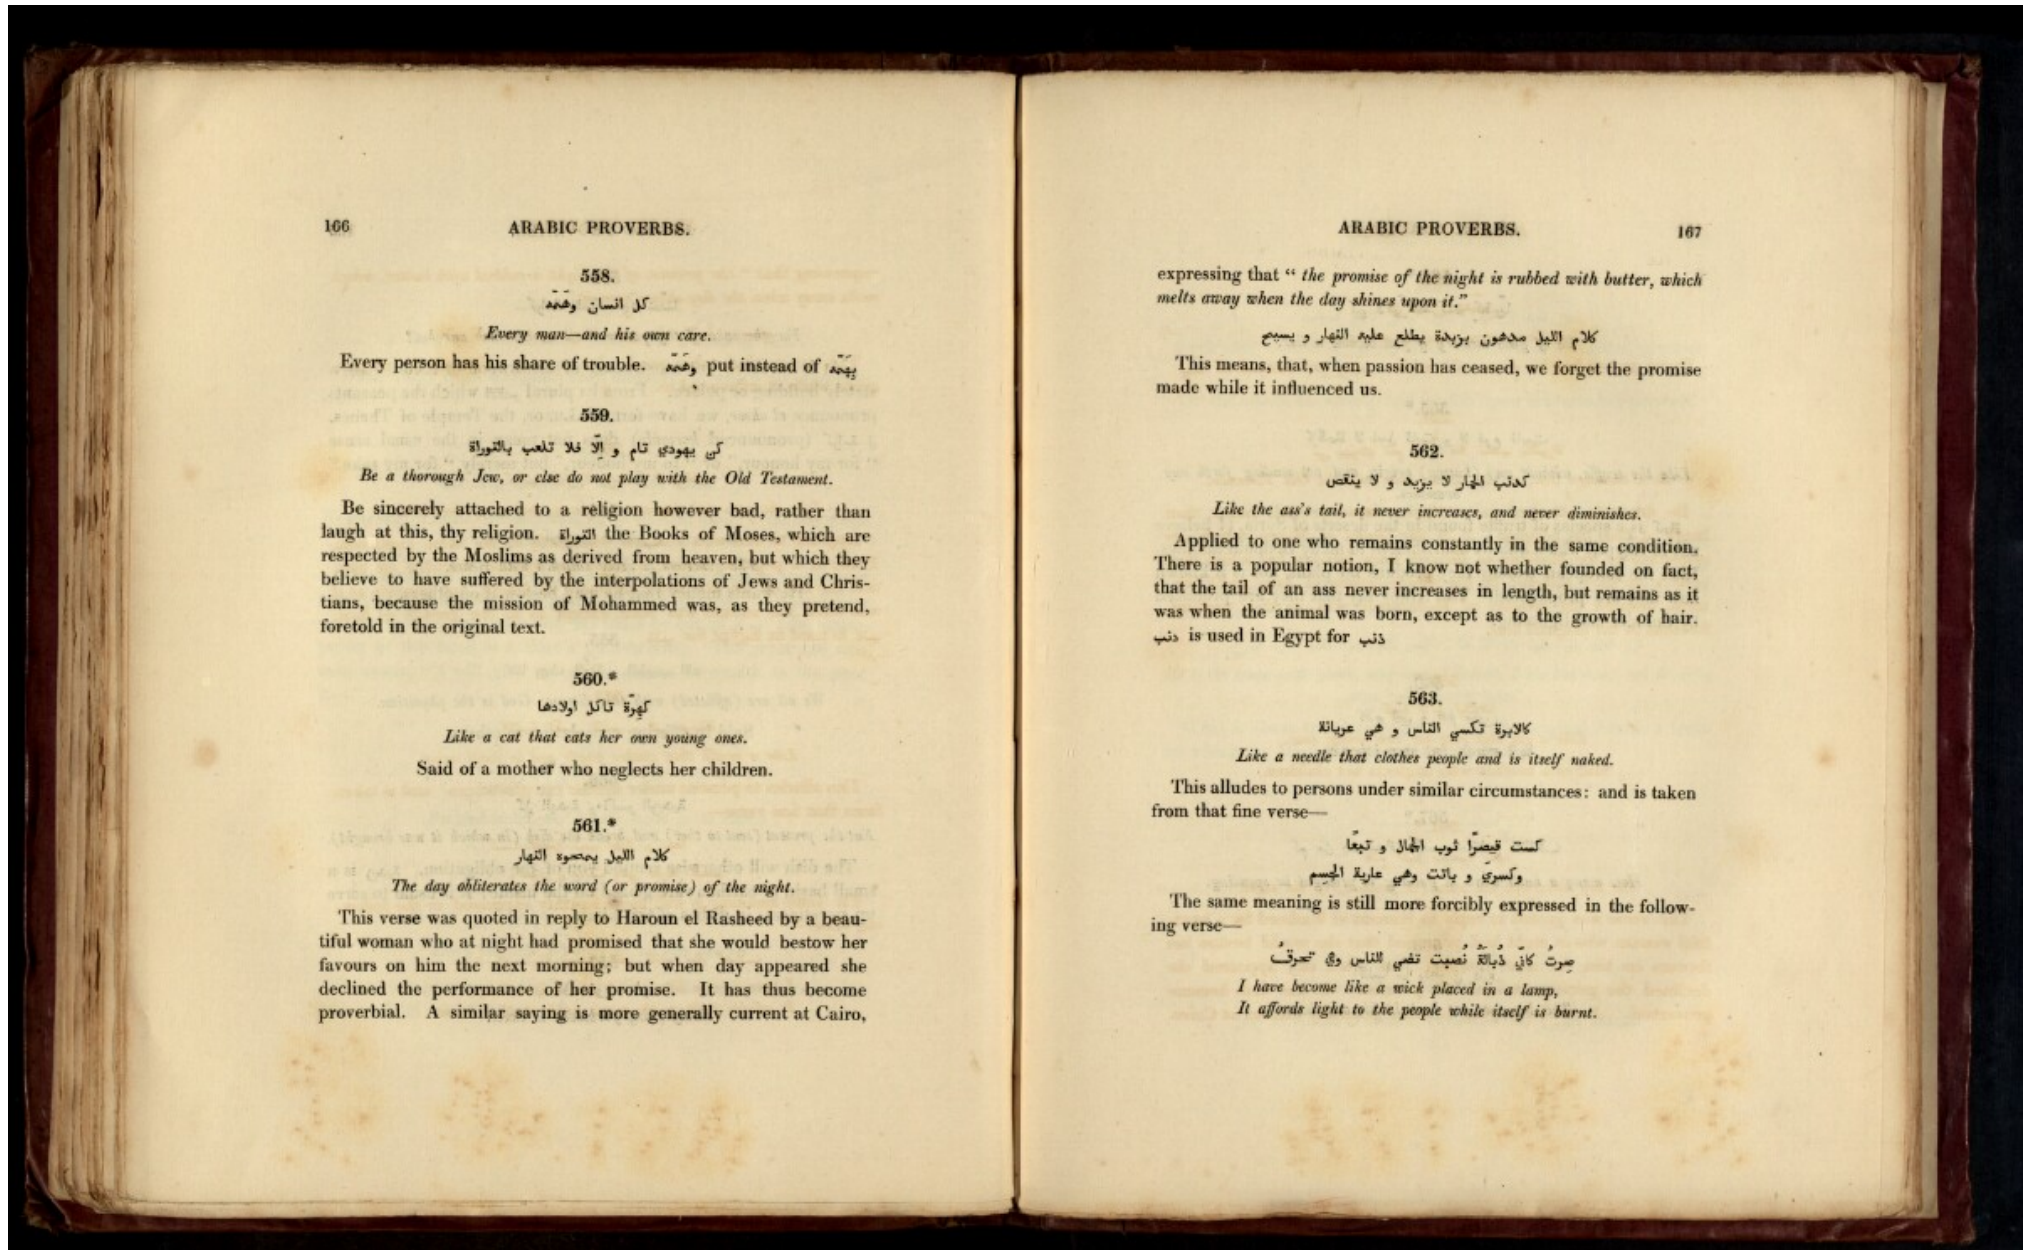 166 ARABIC PROVERBS.
558.
كل انسان وهَمّه
Every man—and his own care.
Every person has his share of trouble. وهَمّه put instead of بِهَمّه
559.
كن يهودي تام و اِلّا فلا تلعب بالتوراة
Be a thorough Jew, or else do not play with the Old Testament.
Be sincerely attached to a religion however bad, rather than
laugh at this, thy religion. التوراة the Books of Moses, which are
respected by the Moslims as derived from heaven, but which they
believe to have suffered by the interpolations of Jews and Chris-
tians, because the mission of Mohammed was, as they pretend,
foretold in the original text.
560.*
كهِرّة تاكل اولادها
Like a cat that eats her own young ones.
Said of a mother who neglects her children.
561.*
كلام الليل يمحوه النهار
The day obliterates the word (or promise) of the night.
This verse was quoted in reply to Haroun el Rasheed by a beau-
tiful woman who at night had promised that she would bestow her
favours on him the next morning; but when day appeared she
declined the performance of her promise. It has thus become
proverbial. A similar saying is more generally current at Cairo,
ARABIC PROVERBS. 167
expressing that “ the promise of the night is rubbed with butter, which
melts away when the day shines upon it.”
كلام الليل مدهون بزبدة يطلع عليه النهار و يسيح
This means, that, when passion has ceased, we forget the promise
made while it influenced us.
562.
كدنب الحمار لا يزيد و لا ينقص
Like the ass's tail, it never increases, and never diminishes.
Applied to one who remains constantly in the same condition.
There is a popular notion, I know not whether founded on fact,
that the tail of an ass never increases in length, but remains as it
was when the animal was born, except as to the growth of hair.
دنب is used in Egypt for ذنب
563.
كالابرة تكسي الناس و هي عريانة
Like a needle that clothes people and is itself naked.
This alludes to persons under similar circumstances: and is taken
from that fine verse—
كست قيصرًا ثوب الجمال و تبعًا
وكسري و باتت وهي عارية الجسم
The same meaning is still more forcibly expressed in the follow-
ing verse—
صرتُ كانّي ذُبالةٌ نُصبت تضي للناس وهي تحرقُ
I have become like a wick placed in a lamp,
It affords light to the people while itself is burnt.